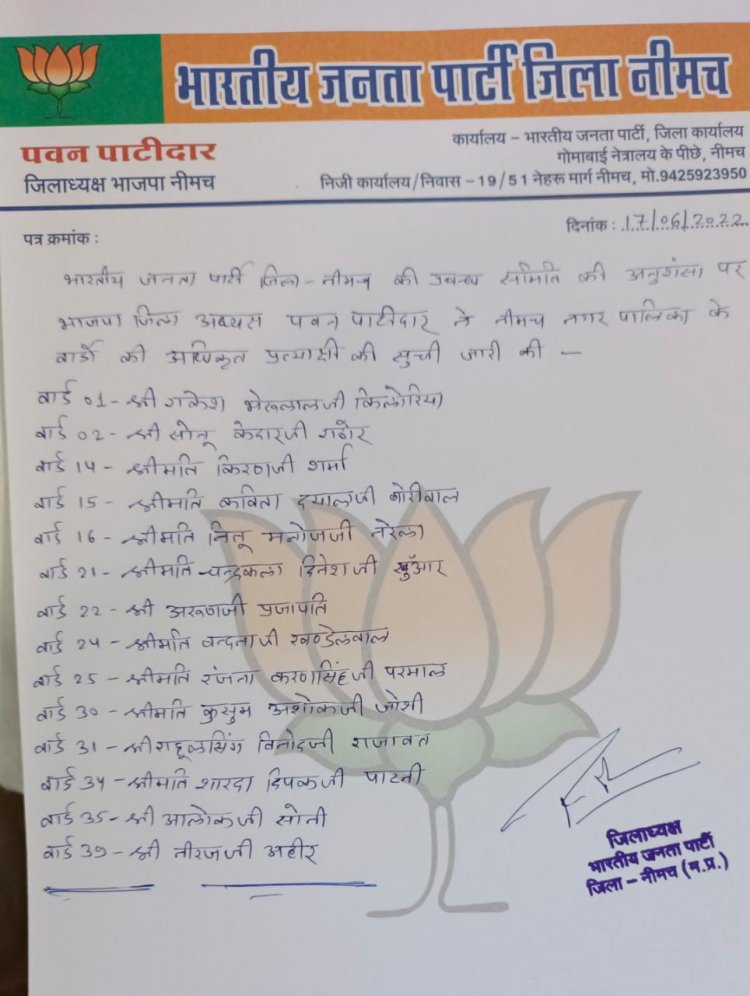 भारतीय जनता पार्टी जिला नीमच
पवन पाटीदार
जिलाध्यक्ष भाजपा नीमच
कार्यालय – भारतीय जनता पार्टी, जिला कार्यालय
गोमाबाई नेत्रालय के पीछे, नीमच
निजी कार्यालय/निवास – 19/51 नेहरू मार्ग नीमच, मो.9425923950
पत्र क्रमांक :
दिनांक : 17/06/2022
भारतीय जनता पार्टी जिला – नीमच की समिति की अनुशंसा पर
भाजपा जिला अध्यक्ष पवन पाटीदार ने नीमच नगर पालिका के
वार्डो की अधिकृत प्रत्याशी की सुची जारी की –
वार्ड 01 – श्री राकेश भेरूलालजी किलोरिया
वार्ड 02 – श्री सोनू केदारजी राठोर
वार्ड 14 – श्रीमति किरणजी शर्मा
वार्ड 15 – श्रीमति कविता दयालजी बोरीवाल
वार्ड 16 – श्रीमति नितू मनोजजी नरेला
वार्ड 21 – श्रीमति चन्द्रकला दिनेशजी खुँआर
वार्ड 22 – श्री अरूणजी प्रजापति
वार्ड 24 – श्रीमति वन्दनाजी खण्डेलवाल
वार्ड 25 – श्रीमति रंजना करणसिंहजी परमाल
वार्ड 30 – श्रीमति कुसुम अशोकजी जोशी
वार्ड 31 – श्री राहूलसिंग विनोदजी राजावत
वार्ड 34 – श्रीमति शारदा दिपकजी पाटनी
वार्ड 35 – श्री आलोकजी सोनी
वार्ड 39 – श्री नीरजजी अहीर
जिलाध्यक्ष
भारतीय जनता पार्टी
जिला – नीमच (म.प्र.)